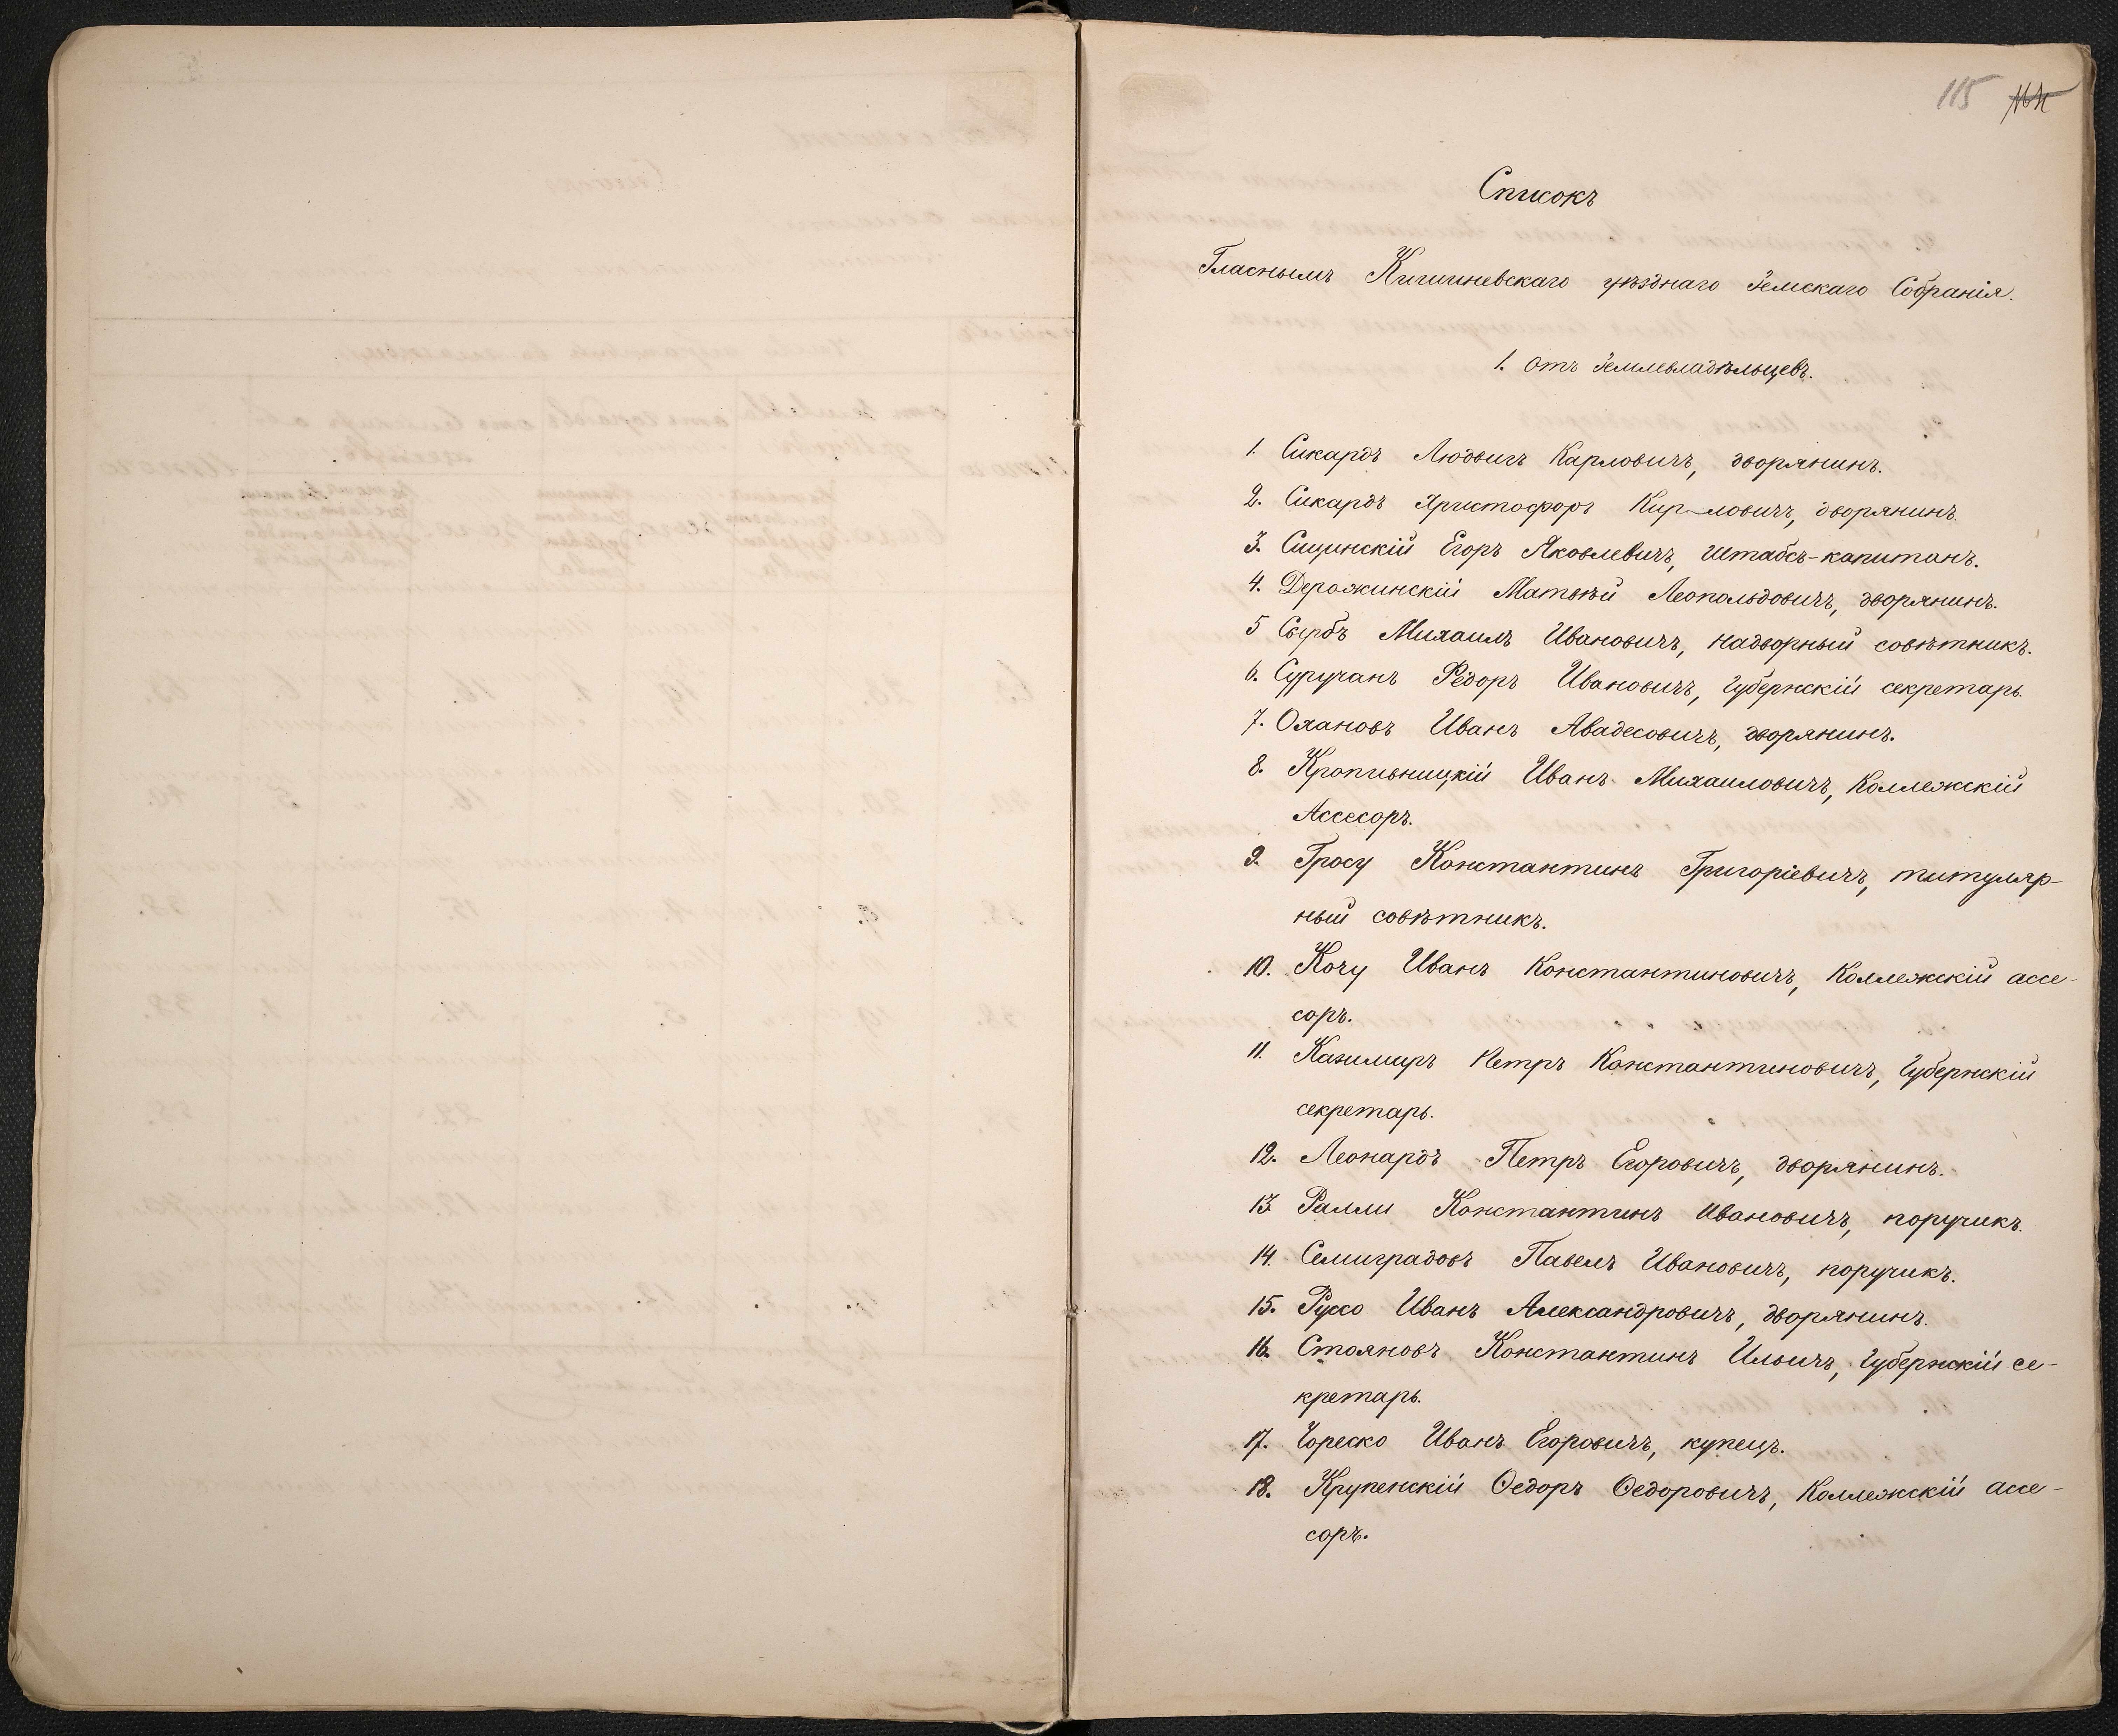 115
Списокъ
Гласнымъ Кишиневскаго уѣзднаго Земскаго Собранія.
1. Отъ Землевладѣльцевъ.
1. Сикардъ Людвигъ Карловичъ, дворянинъ.
2. Сикардъ Христофоръ Кир-ловичъ, дворянинъ.
3. Сицинскій Егоръ Яковлевичъ, Штабсъ-капитанъ.
4. Дерожинскій Матвѣй Леопольдовичъ, дворянинъ.
5 Сырбъ Михаилъ Ивановичъ, надворный совѣтникъ.
6. Суручанъ Ѳедоръ Ивановичъ, Губернскій секретарь.
7. Охановъ Иванъ Авадесовичъ, дворянинъ.
8. Кропивницкій Иванъ Михаиловичъ, Коллежскій
Ассесоръ.
9. Гросу Константинъ Григоріевичъ, титуляр-
ный совѣтникъ.
10. Кочу Иванъ Константиновичъ, Коллежскій ассе-
соръ.
11. Казимиръ Петръ Константиновичъ, Губернскій
секретарь.
12. Леонардъ Петръ Егоровичъ, дворянинъ.
13 Ралли Константинъ Ивановичъ, поручикъ.
14. Семиградовъ Павелъ Ивановичъ, поручикъ.
15. Руссо Иванъ Александровичъ, дворянинъ.
16. Стояновъ Константинъ Ильичъ, Губернскій се-
кретарь.
17. Чореско Иванъ Егоровичъ, купецъ.
18. Крупенскій Ѳедоръ Ѳедоровичъ, Коллежскій ассе-
соръ.